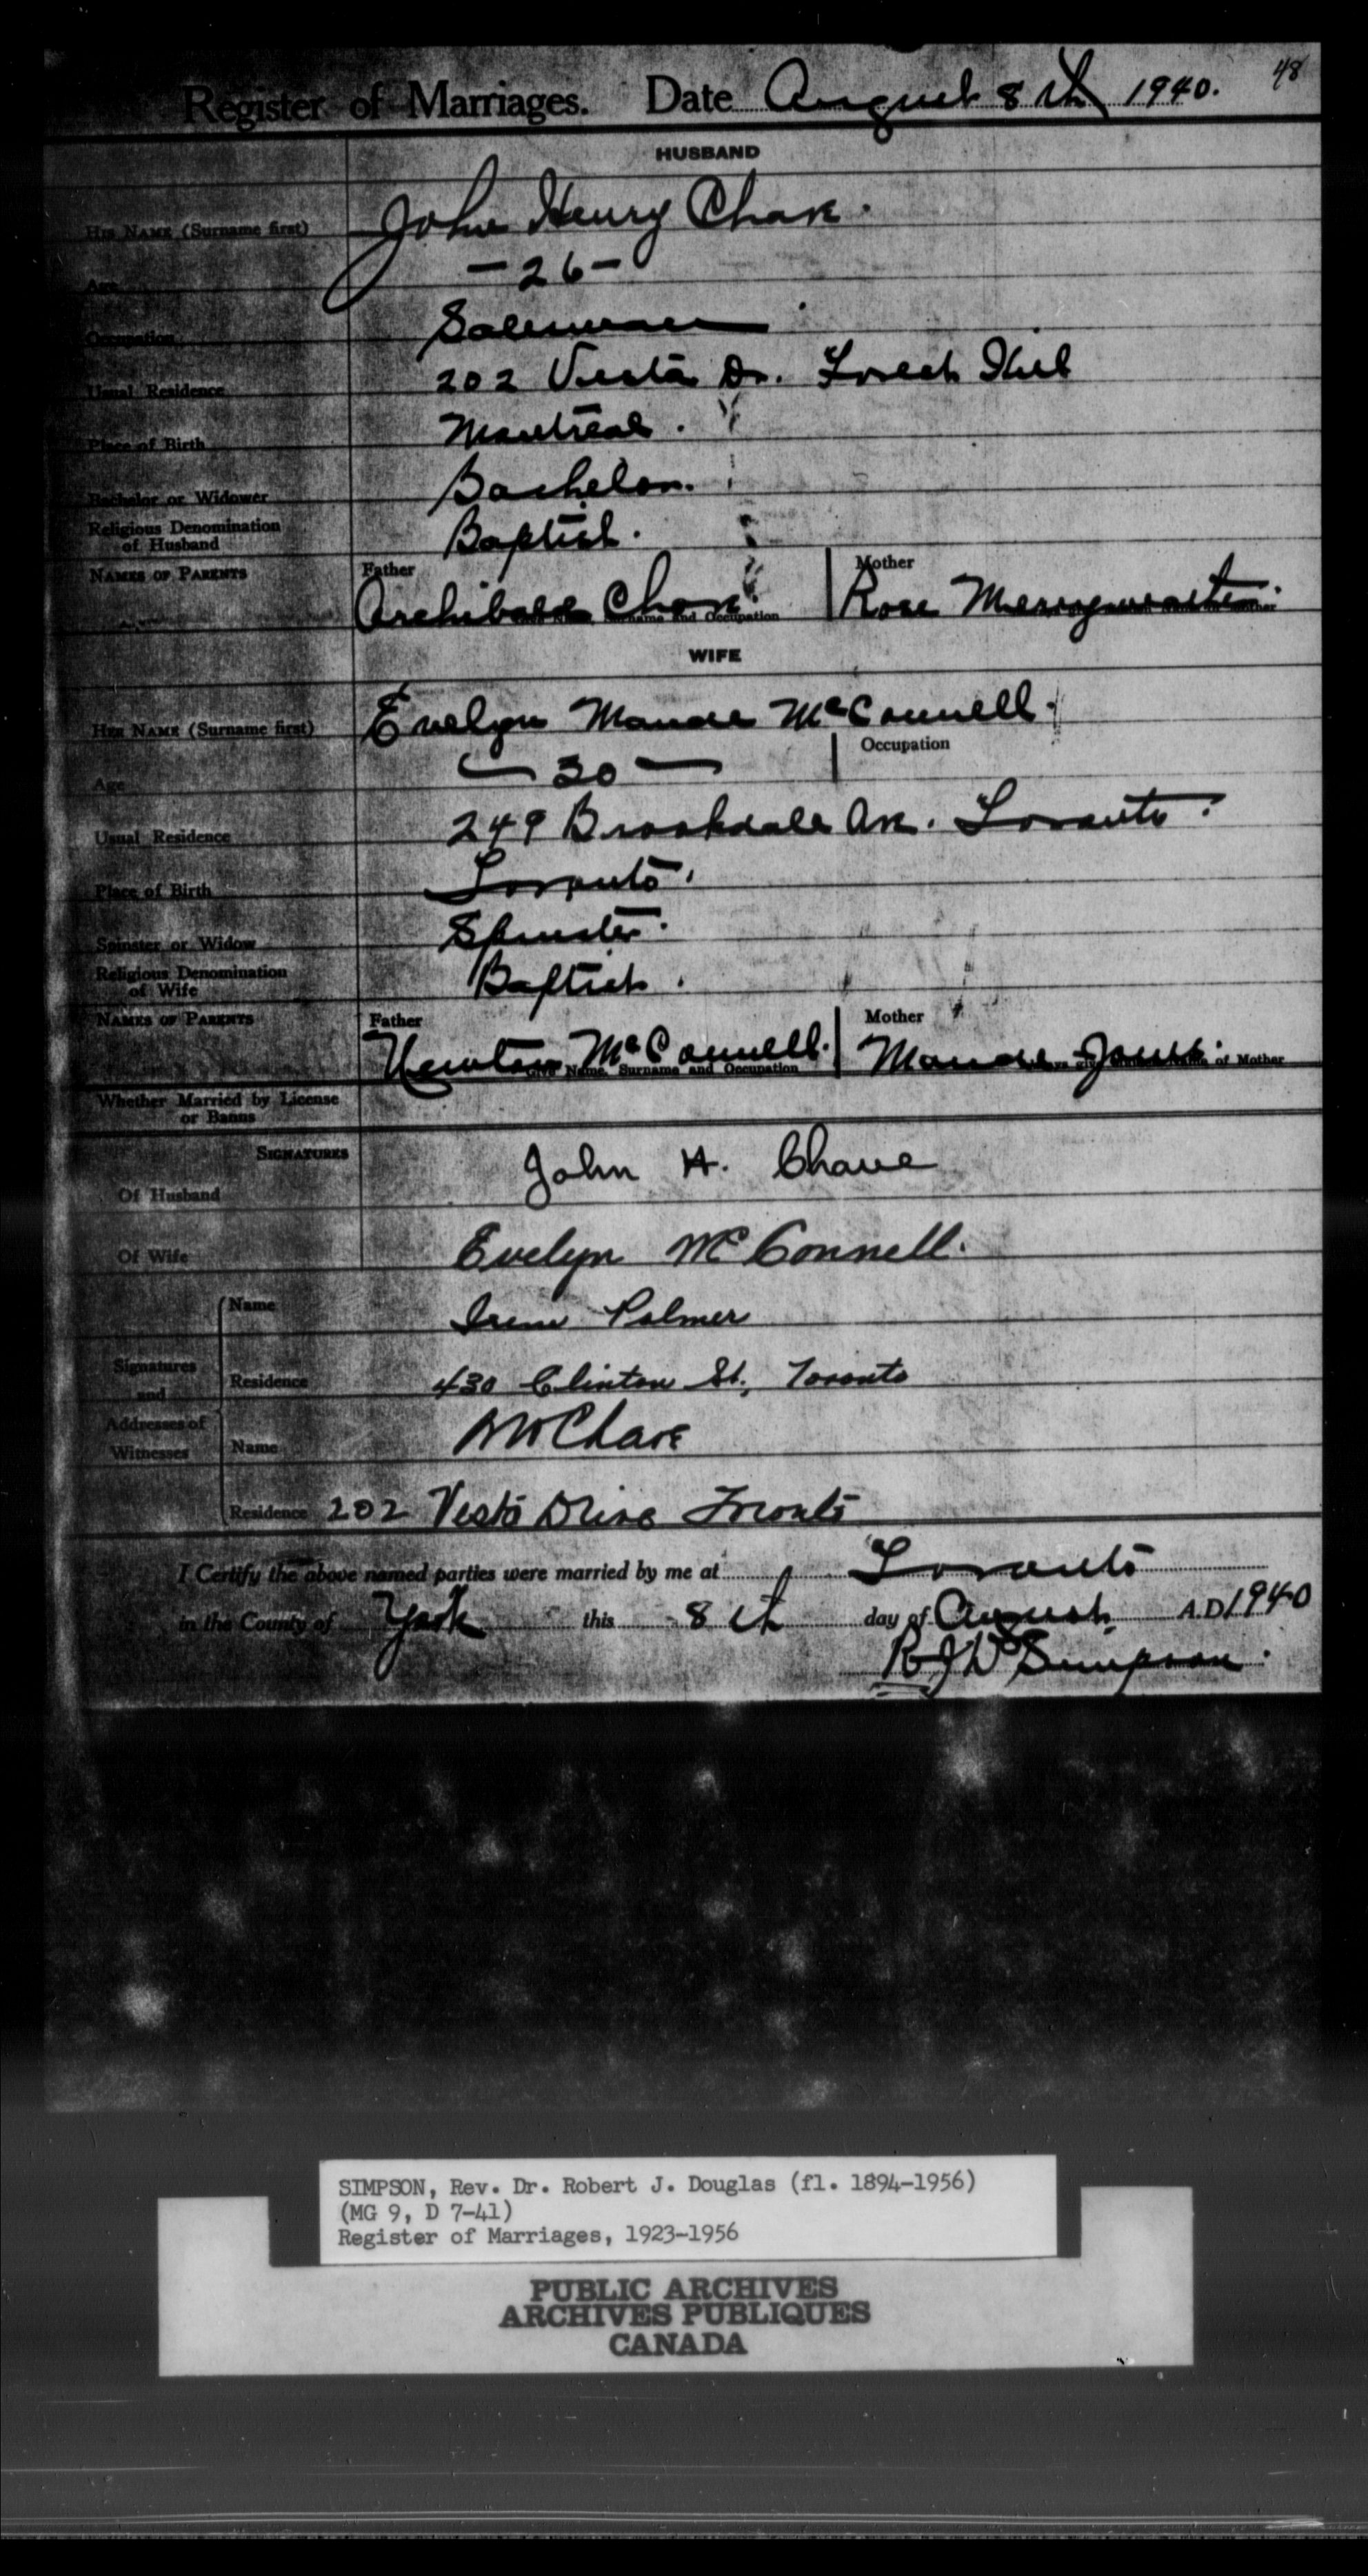 48
Register of Marriages. Date August 8th 1940.
HUSBAND
His Name (Surname first) John Henry Chave.
Age - 26 -
Occupation Salesman
Usual Residence 202 Vesta Dr. Forest Hill
Place of Birth Montreal.
Bachelor or Widower Bachelor.
Religious Denomination
of Husband Baptist.
Names of Parents Father Mother
Archibald Chave. Rose Merryweather.
Surname and Occupation
WIFE
Her Name (Surname first) Evelyn Maude McConnell.
Occupation
Age 30
Usual Residence 249 Brookdale Ave. Toronto.
Place of Birth Toronto.
Spinster or Widow Spinster.
Religious Denomination
of Wife Baptist.
Names of Parents Father Mother
Newton McConnell. Maude
Give Name, Surname and Occupation of Mother
Whether Married by License
or Banns
Signatures
Of Husband John H. Chave
Of Wife Evelyn McConnell.
Name Irene Palmer
Signatures
and
Residence 430 Clinton St., Toronto
Addresses of
Witnesses
Name Chave
Residence 202 Vesta Drive Toronto
I Certify the above named parties were married by me at Toronto
in the County of York this 8th day of August A.D 1940
R J D Simpson.
SIMPSON, Rev. Dr. Robert J. Douglas (fl. 1894-1956)
(MG 9, D 7-41)
Register of Marriages, 1923-1956
PUBLIC ARCHIVES
ARCHIVES PUBLIQUES
CANADA